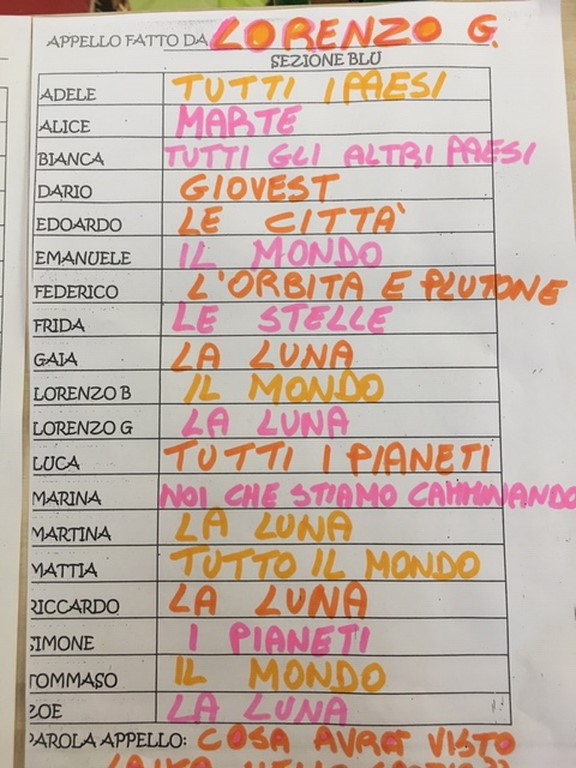 APPELLO FATTO DA LORENZO G.
SEZIONE BLU
ADELE TUTTI I PAESI
ALICE MARTE
BIANCA TUTTI GLI ALTRI PAESI
DARIO GIOVEST
EDOARDO LE CITTA'
EMANUELE IL MONDO
FEDERICO L'ORBITA E PLUTONE
FRIDA LE STELLE
GAIA LA LUNA
LORENZO B IL MONDO
LORENZO G LA LUNA
LUCA TUTTI I PIANETI
MARINA NOI CHE STIAMO CAMMINANDO
MARTINA LA LUNA
MATTIA TUTTO IL MONDO
RICCARDO LA LUNA
SIMONE I PIANETI
TOMMASO IL MONDO
ZOE LA LUNA
PAROLA APPELLO: COSA AVRA' VISTO